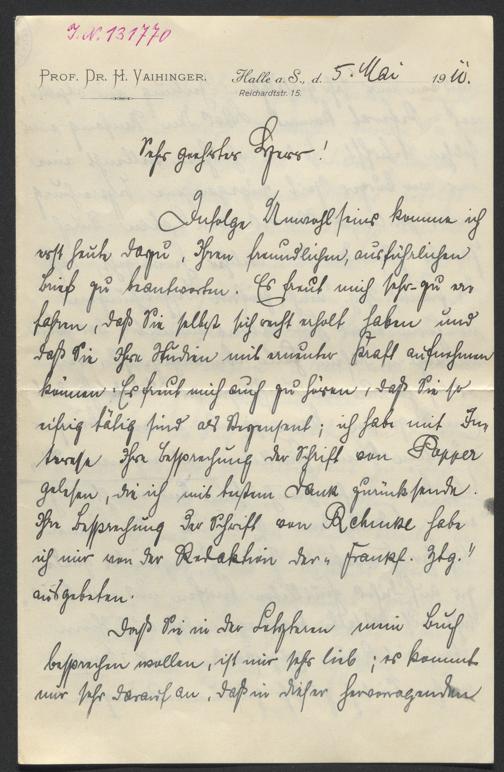 J. N. 131770
PROF. DR. H. VAIHINGER. Halle a. S., d. 5. Mai 1910.
Reichardtstr. 15.
Sehr geehrter Herr!
Infolge Unwohlseins komme ich
erst heute dazu, Ihren freundlichen, ausführlichen
Brief zu beantworten. Es freut mich sehr zu er-
fahren, daß Sie selbst sich recht erholt haben und
daß Sie Ihre Studien mit erneuter Kraft aufnehmen
können. Es freut mich auch zu hören, daß Sie so
eifrig tätig sind als Rezensent; ich habe mit In-
terese Ihre Besprechung der Schrift von Popper
gelesen, die ich mit bestem Dank zurücksende.
Ihre Besprechung der Schrift von Rehmke habe
ich mir von der Redaktion der „Frankf. Ztg."
ausgebeten.
Daß Sie in der Letzteren mein Buch
besprechen wollen, ist mir sehr lieb; es kommt
mir sehr darauf an, daß in dieser hervorragenden